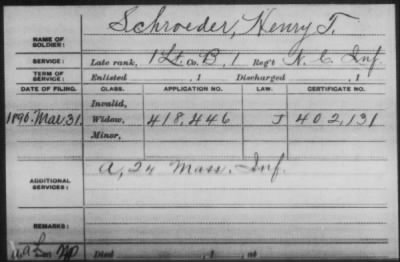 NAME OF SOLDIER: Schroeder, Henry T.
SERVICE: Late rank, 1 Lt. Co. B, 1 Reg't N. C. Inf.
TERM OF SERVICE: Enlisted , 1 Discharged , 1
DATE OF FILING. CLASS. APPLICATION NO. LAW. CERTIFICATE NO.
Invalid,
1890. Mar 31. Widow, 418,446 J 402,131
Minor,
ADDITIONAL SERVICES: A, 24 Mass. Inf.
REMARKS:
Died , 1 , at